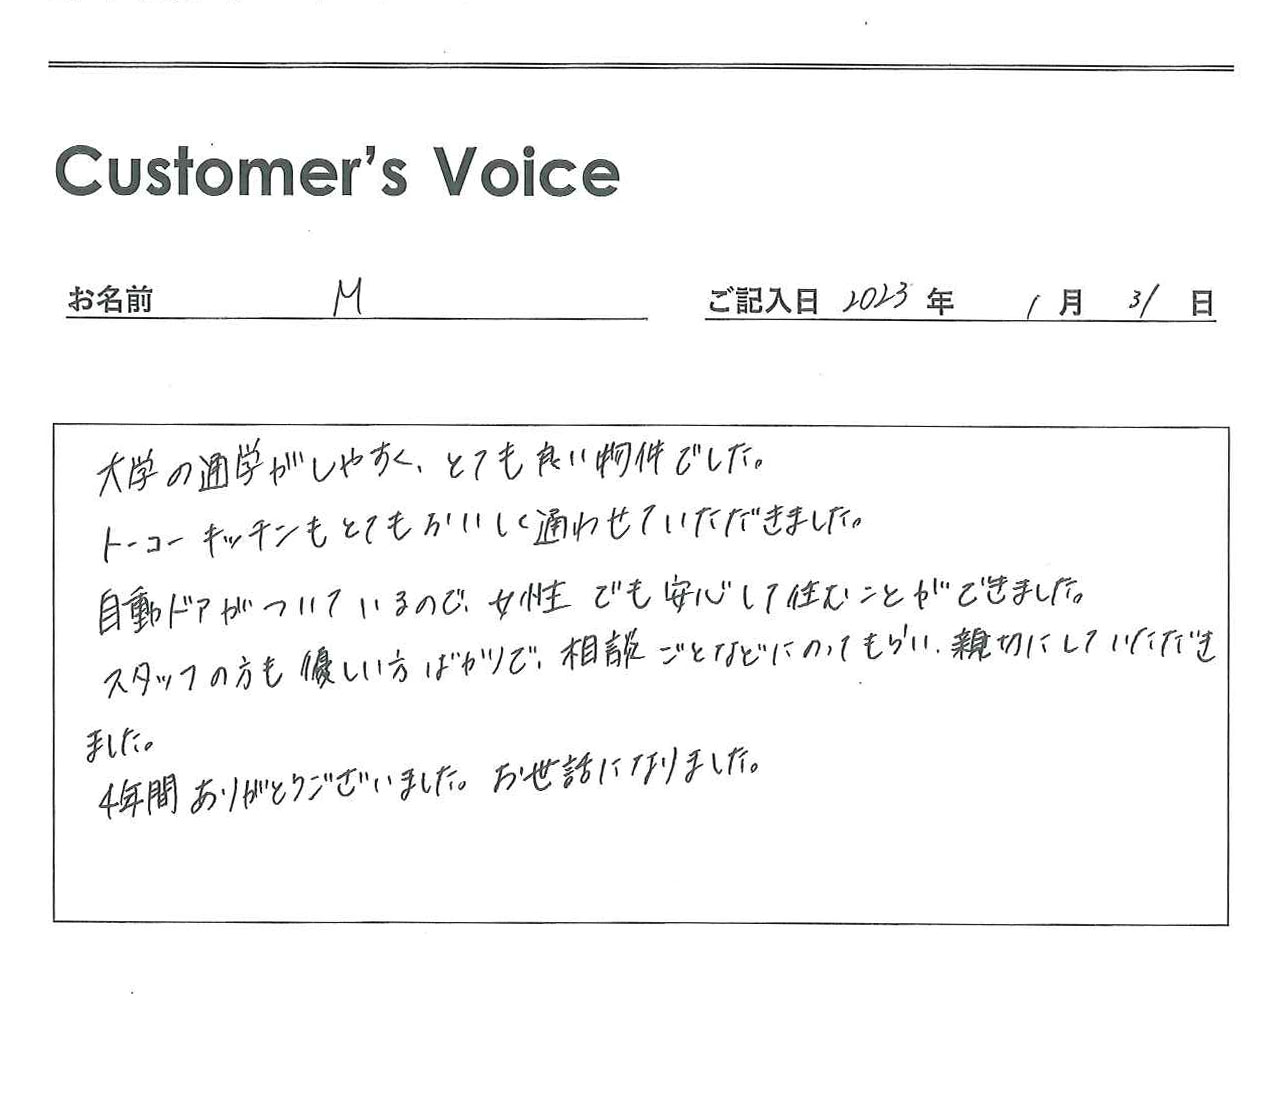 Customer's Voice
お名前 M ご記入日 2023 年 1 月 31 日
大学の通学がしやすく、とても良い物件でした。
トーコーキッチンもとてもおいしく通わせていただきました。
自動ドアがついているので、女性でも安心して住むことができました。
スタッフの方も優しい方ばかりで、相談ごとなどにのってもらい、親切にしていただき
ました。
4年間ありがとうございました。お世話になりました。